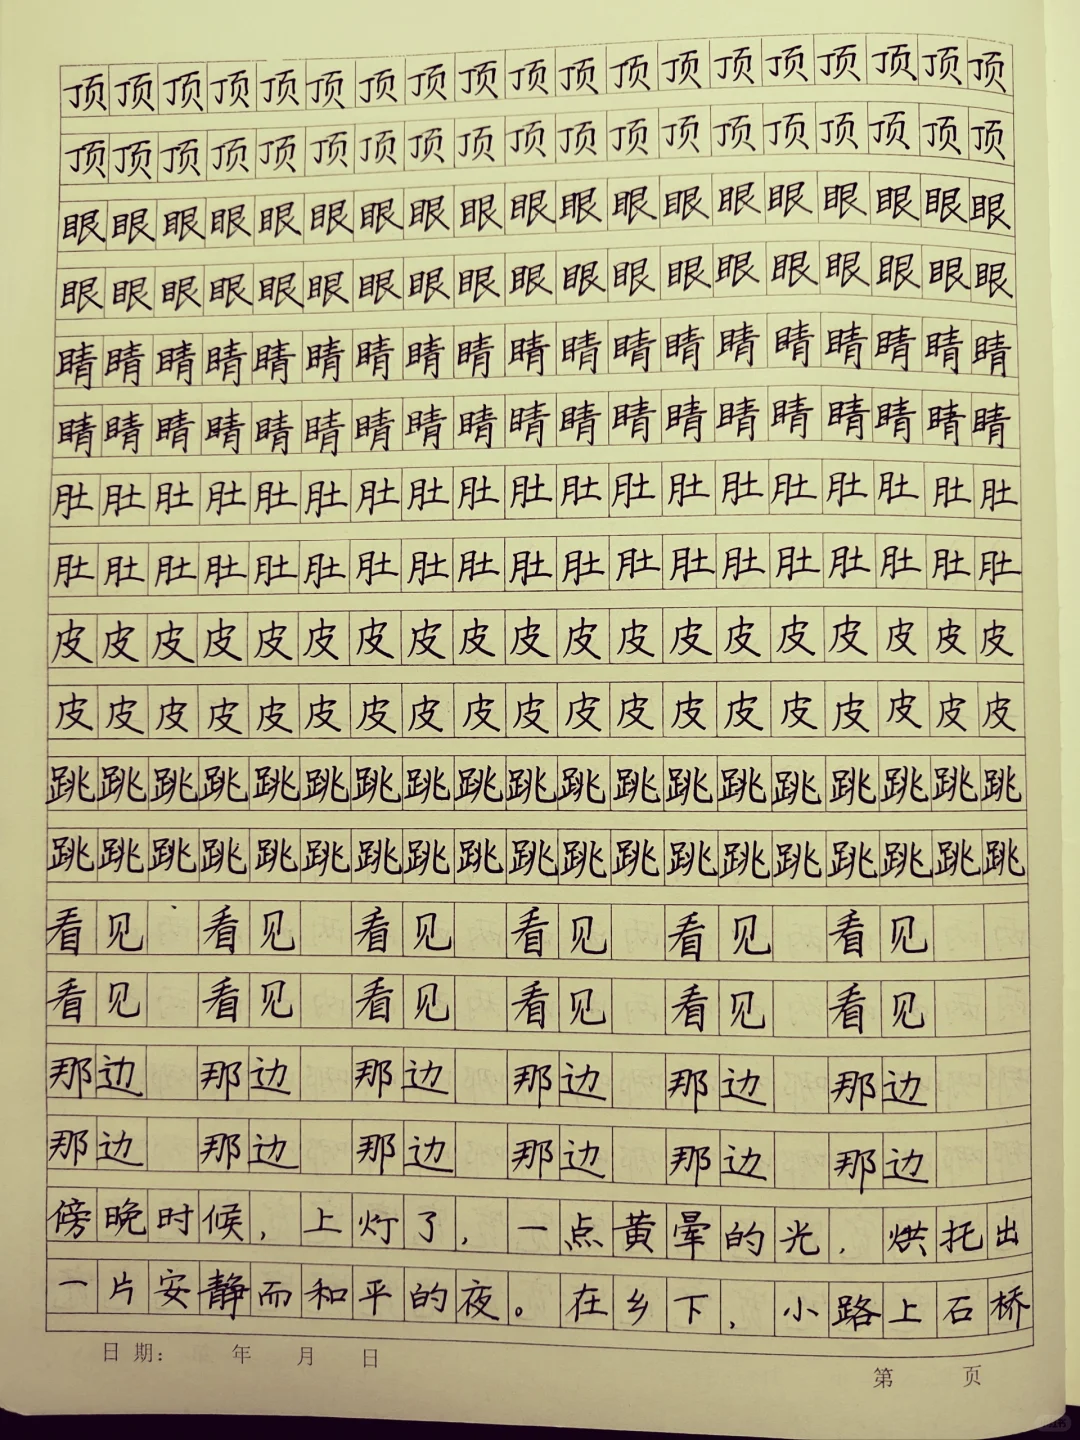 顶顶顶顶顶顶顶顶顶顶顶顶顶顶顶顶顶顶顶
顶顶顶顶顶顶顶顶顶顶顶顶顶顶顶顶顶顶顶
眼眼眼眼眼眼眼眼眼眼眼眼眼眼眼眼眼眼眼
眼眼眼眼眼眼眼眼眼眼眼眼眼眼眼眼眼眼眼
睛睛睛睛睛睛睛睛睛睛睛睛睛睛睛睛睛睛睛
睛睛睛睛睛睛睛睛睛睛睛睛睛睛睛睛睛睛睛
肚肚肚肚肚肚肚肚肚肚肚肚肚肚肚肚肚肚肚
肚肚肚肚肚肚肚肚肚肚肚肚肚肚肚肚肚肚肚
皮皮皮皮皮皮皮皮皮皮皮皮皮皮皮皮皮皮皮
皮皮皮皮皮皮皮皮皮皮皮皮皮皮皮皮皮皮皮
跳跳跳跳跳跳跳跳跳跳跳跳跳跳跳跳跳跳跳
跳跳跳跳跳跳跳跳跳跳跳跳跳跳跳跳跳跳跳
看见 看见 看见 看见 看见 看见
看见 看见 看见 看见 看见 看见
那边 那边 那边 那边 那边 那边
那边 那边 那边 那边 那边 那边
傍晚时候，上灯了，一点黄晕的光，烘托出
一片安静而和平的夜。在乡下，小路上石桥
日期： 年 月 日 第 页